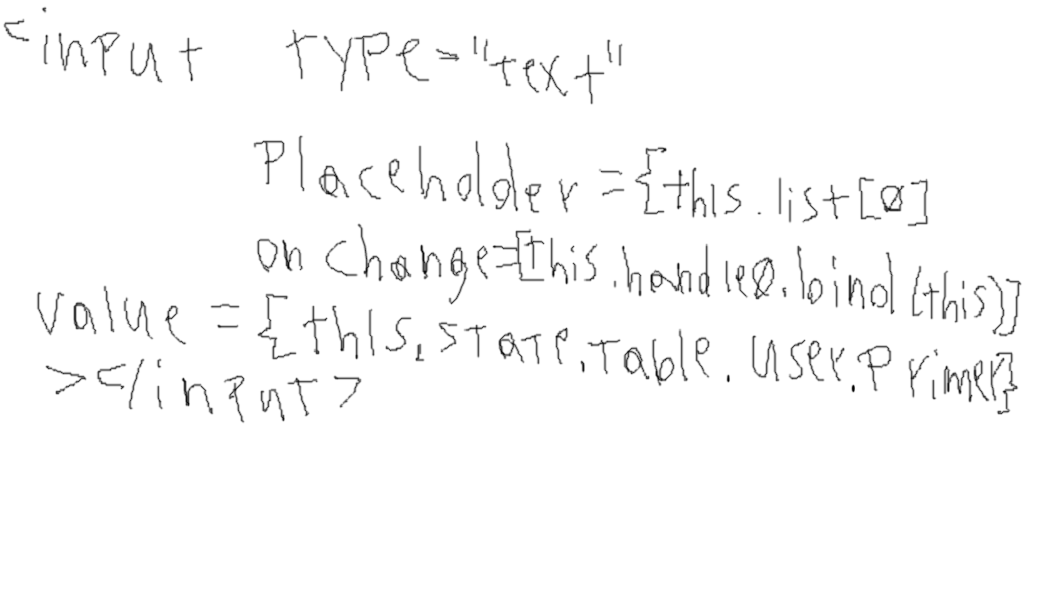 <input type="text"
Placeholder={this.list[0]
onchange=[this.handle0.bind(this)]
value={this.state.table.user.primer}
></input>